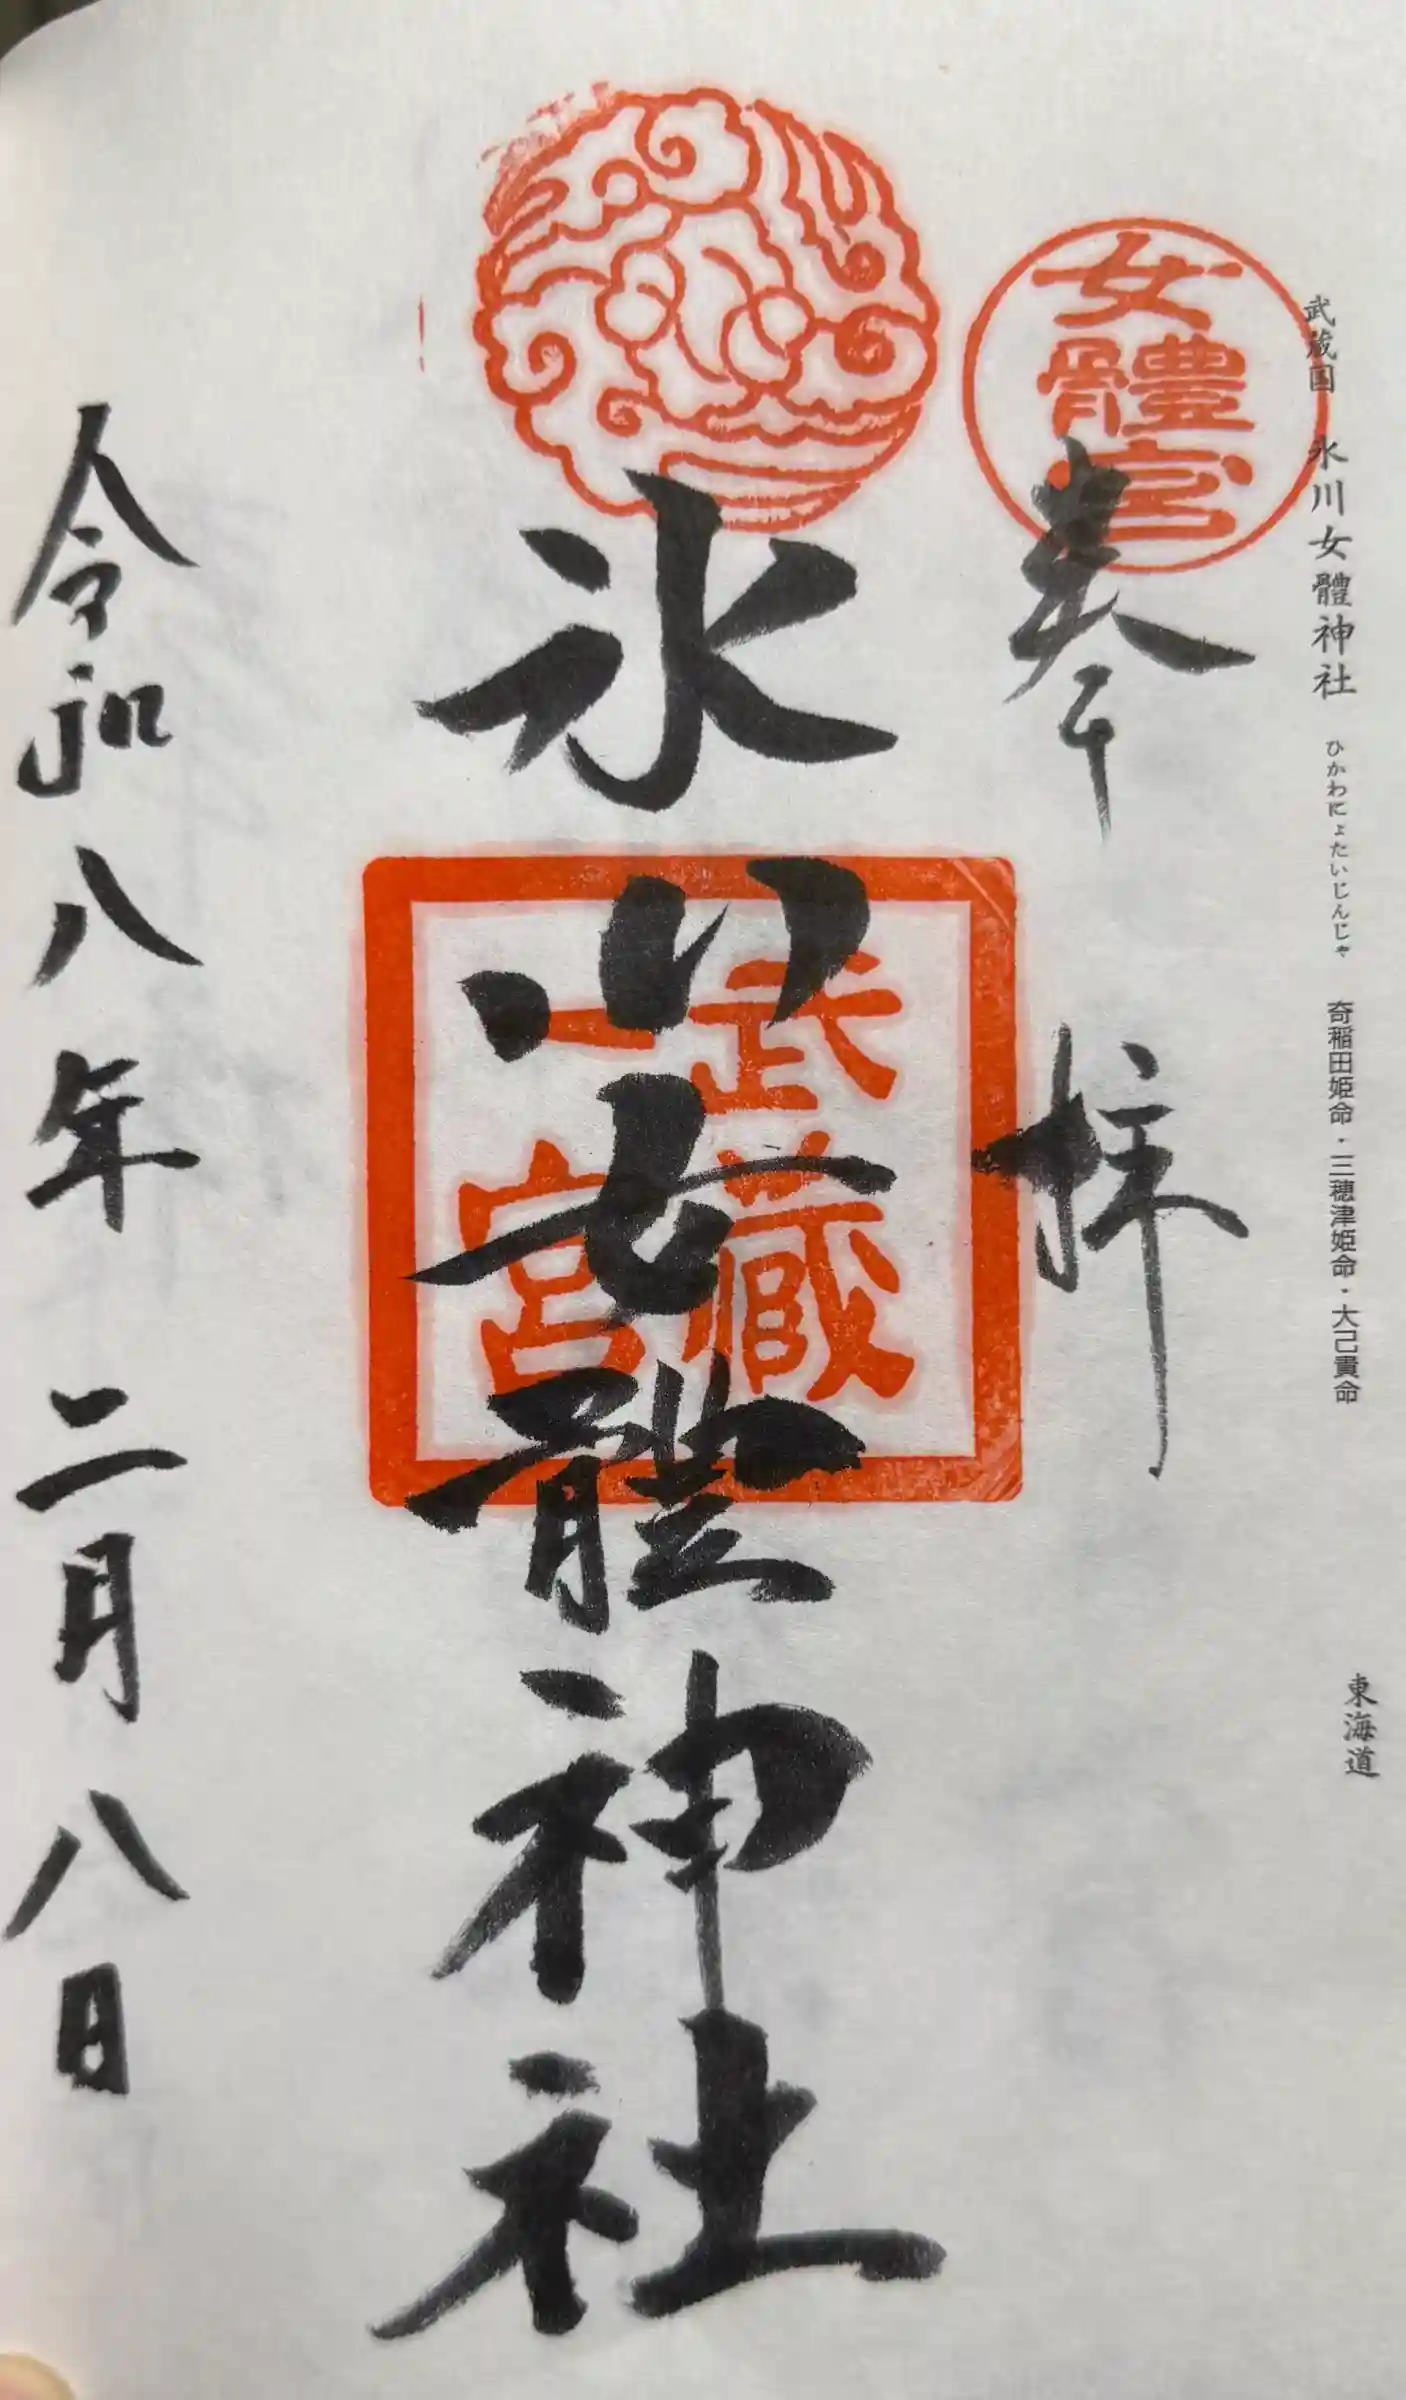 武蔵国 氷川女體神社 ひかわにょたいじんじゃ 奇稲田姫命・三穂津姫命・大己貴命 東海道
女體宮
奉拝
氷川女體神社
武蔵
一宮
令和八年 二月八日